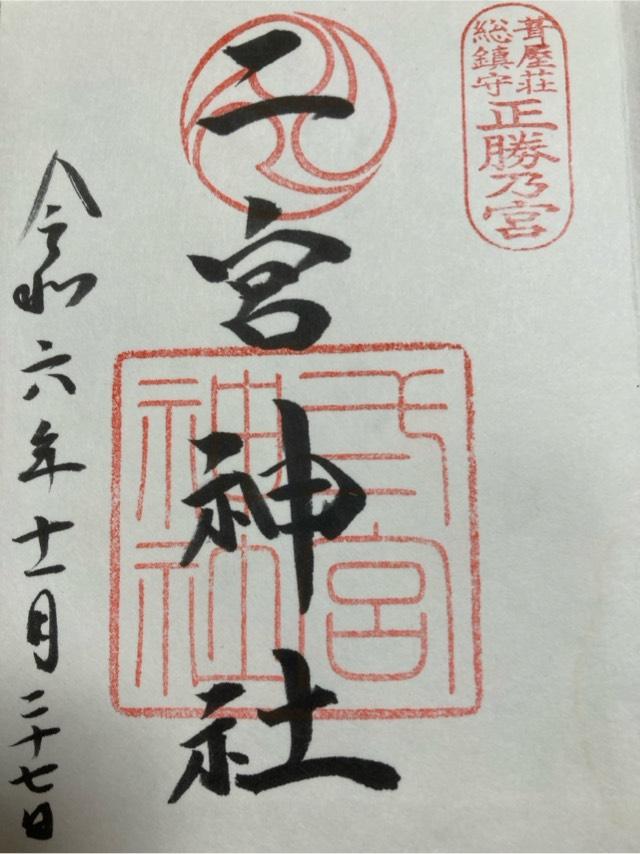 葺屋荘
総鎮守
正勝乃宮
二宮神社
弍宮
神社
令和六年十一月二十七日